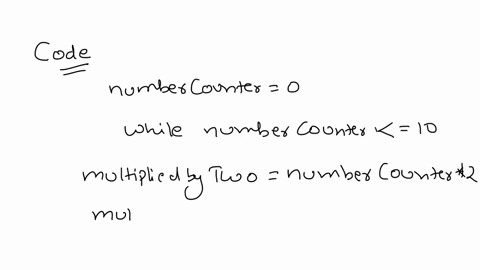 Code
numberCounter = 0
while numberCounter <= 10
multipliedbyTwo = numberCounter*2
mul